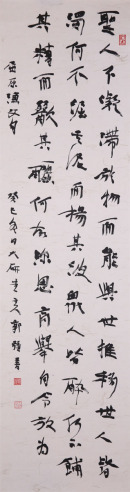 聖人不凝滯於物而能與世推移世人皆
濁何不淈其泥而揚其波眾人皆醉何不餔
其糟而歠其醨何故深思高舉自令放為
屈原漁父句
癸巳